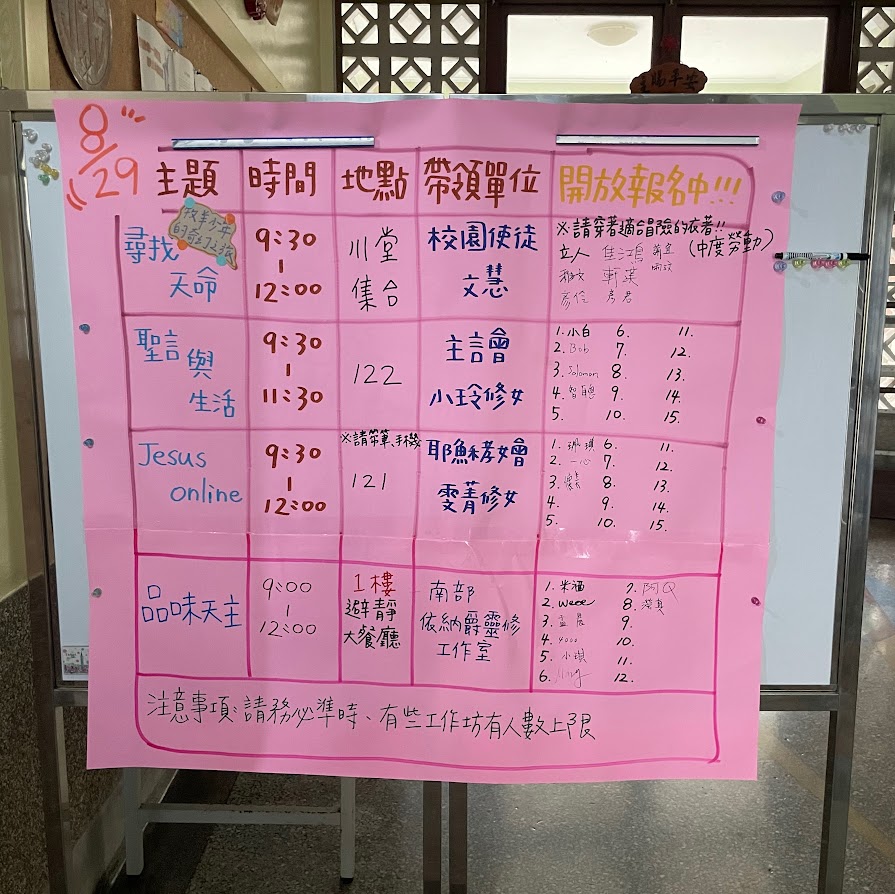 8/29
主題 時間 地點 帶領單位 開放報名中!!!
尋找
天命
9:30
|
12:00
川堂
集合
校園使徒
文慧
※請穿著適合冒險的衣著!!
(中度勞動)
立人 佳鴻
軒萁
彥君
聖言與
生活
9:30
|
11:30
122
主言會
小玲修女
1.小白 6. 11.
2.Bob 7. 12.
3.Solomon 8. 13.
4.智聰 9. 14.
5. 10. 15.
Jesus
online
9:30
|
12:00
※請帶筆、手機
121
耶穌孝女會
雯菁修女
1.珮琪 6. 11.
2.一心 7. 12.
3. 8. 13.
4. 9. 14.
5. 10. 15.
品味天主
9:00
|
12:00
1樓
避靜
大餐廳
南部
依納爵靈修
工作室
1.米酒 7.阿Q
2.weee 8.
3.孟晨 9.
4.yooo 10.
5.小琪 11.
6. 12.
注意事項:請務必準時、有些工作坊有人數上限